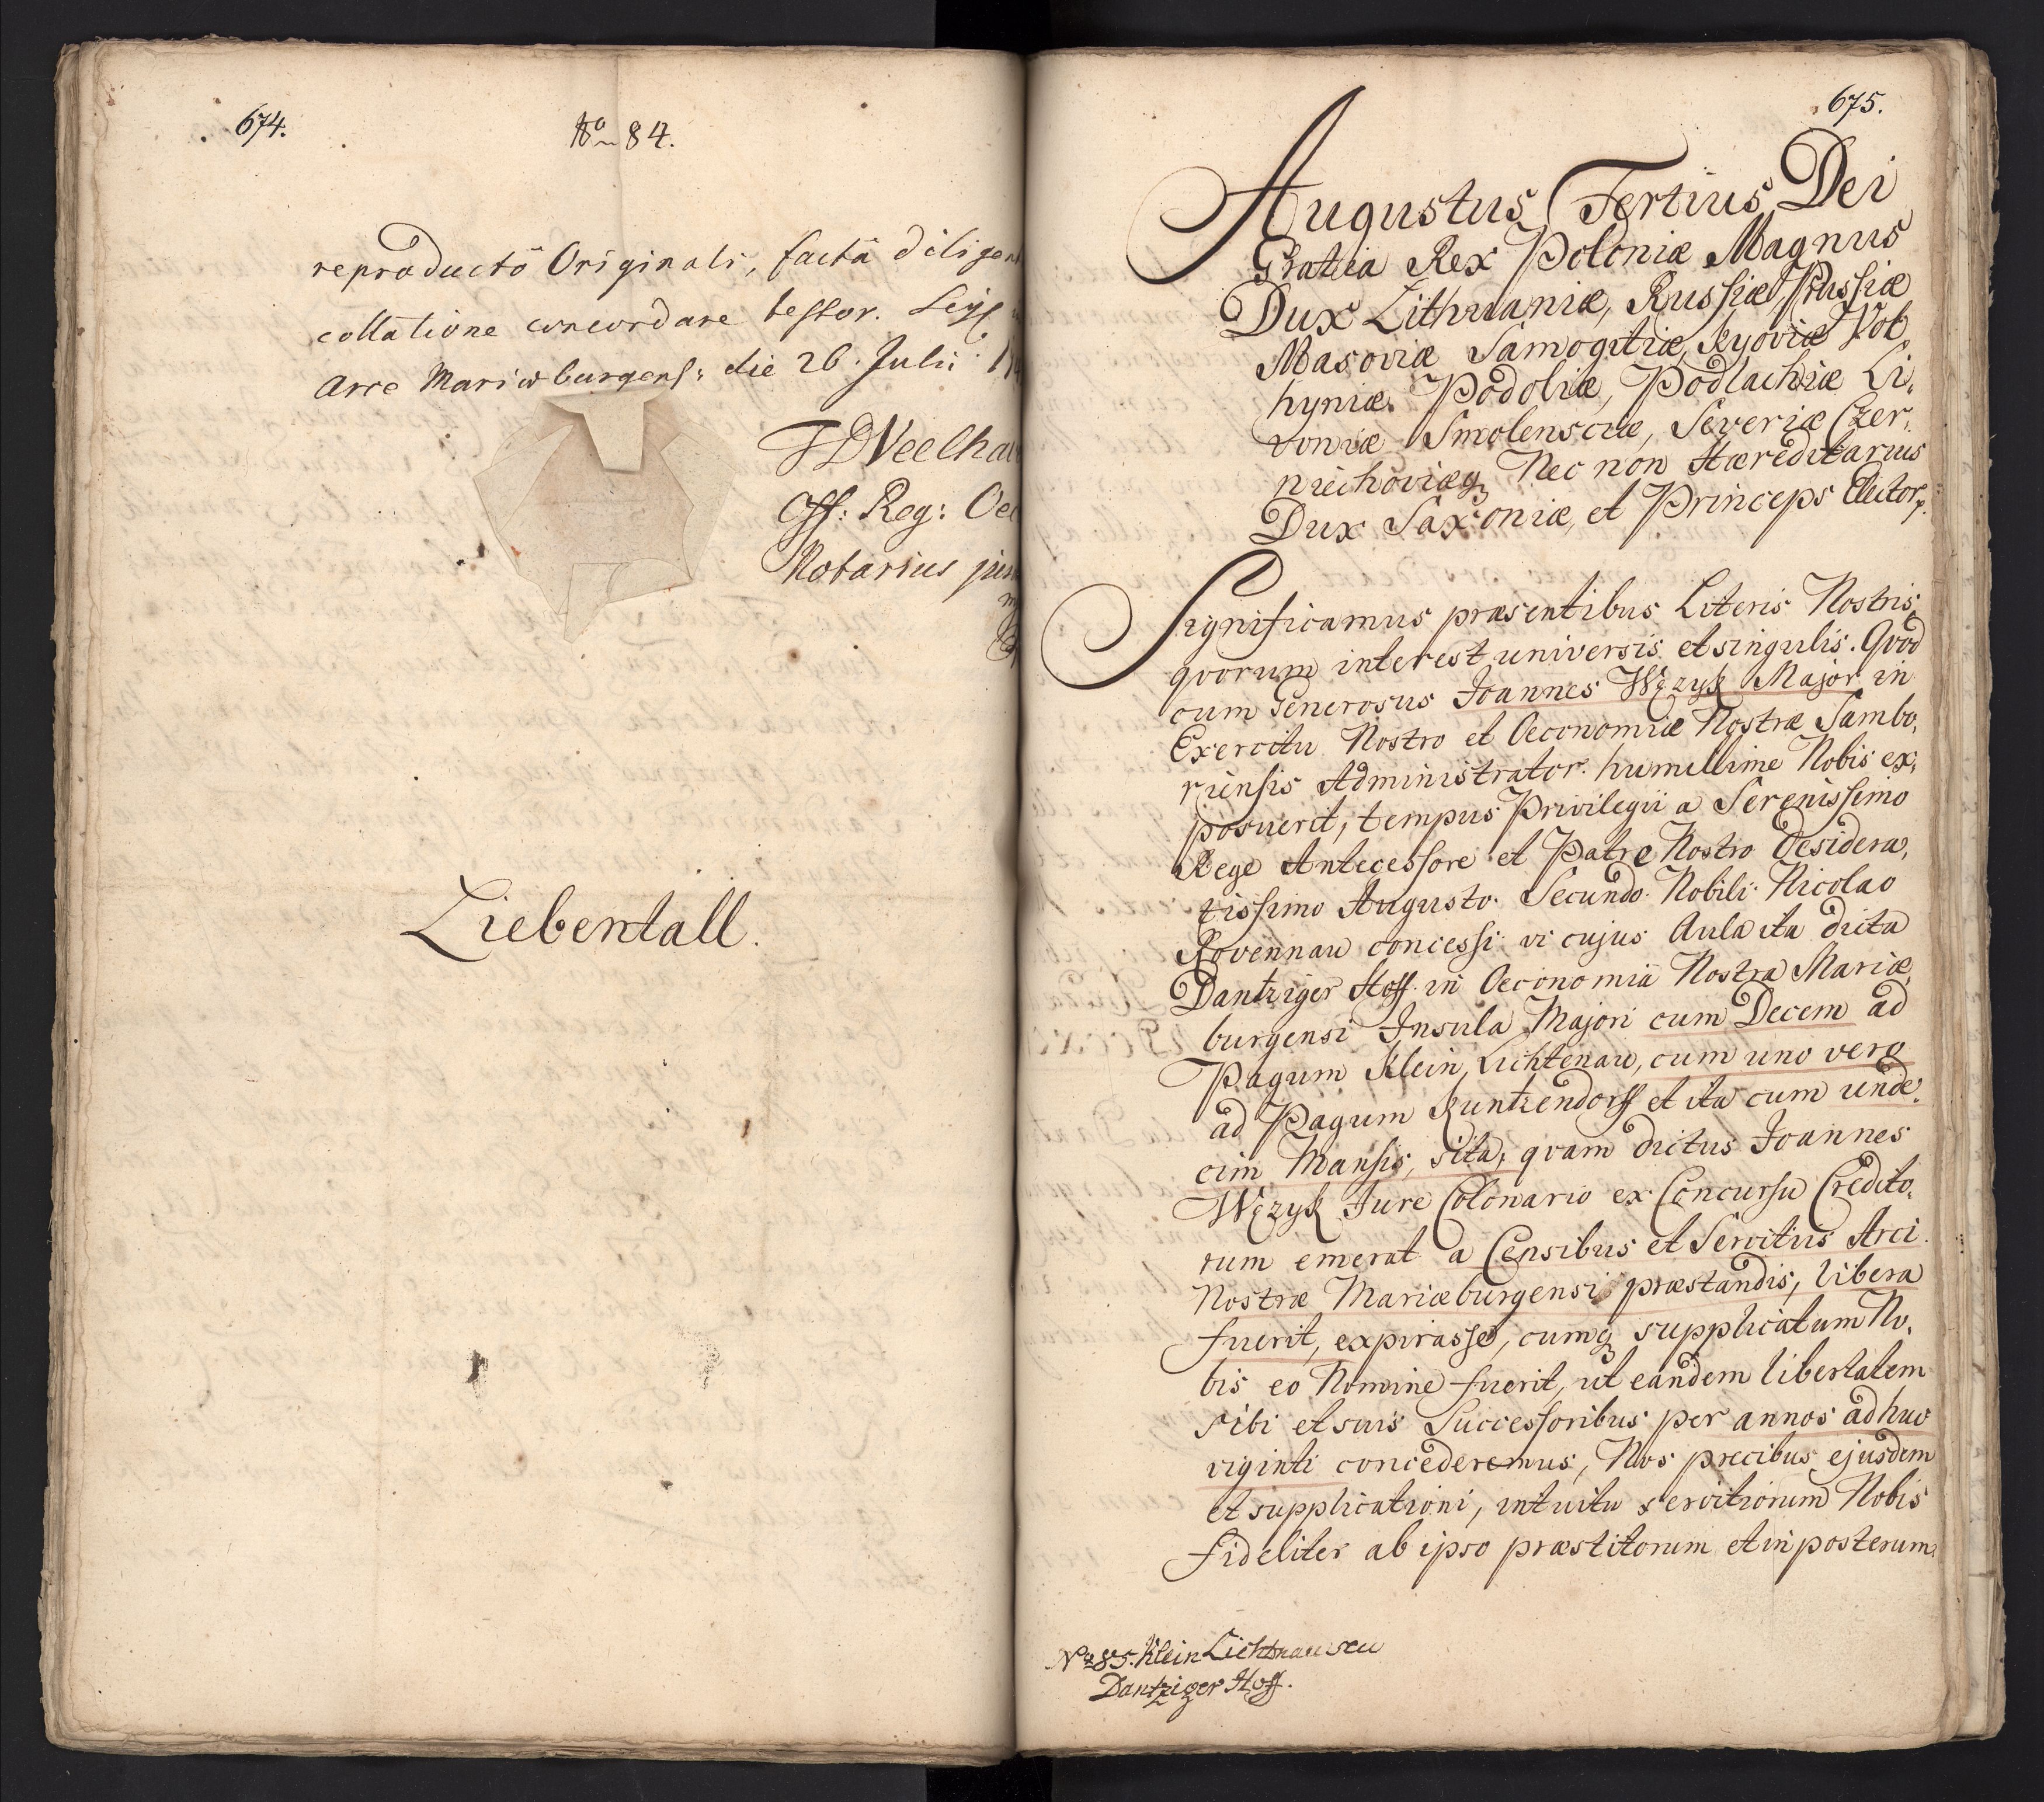 674.
No 84.
reproductô Originali, factâ diligen
collatione concordare testor.
Arce Mariæburgens: die 26. Julii
Off: Reg:
Notarius
Liebentall.
675.
Augustus Tertius Dei
Gratia Rex Poloniæ Magnus
Dux Lithuaniæ, Russiæ Prussiæ
Masoviæ Samogitiæ, Kyoviæ Vol,
hyniæ. Podoliæ, Podlachiæ Li,
voniæ Smolensciæ, Severiæ Czer,
niechoviæq Nec non Hæreditarius
Dux Saxoniæ, et Princeps Elector.
Significamus præsentibus Literis Nostris,
qvorum interest universis et singulis. Qvod
cum Generosus Joannes Wężyk Major in
Exercitu Nostro et Oeconomiæ Nostræ Sambo,
riensis Administrator. humillime Nobis ex,
posuerit, tempus Privilegii a Serenissimo
Rege Antecessore et Patre Nostro Desidera,
tissimo Augusto. Secundo. Nobili. Nicolao
Rovennau concessi vi cujus Aula ita dicta
Dantziger Hoff. in Oeconomiâ Nostra Mariæ,
burgensi Insula Majori cum Decem ad
Pagum Klein, Lichtenau, cum uno vero
ad Pagum Kuntzendorff et ita cum unde,
cim Mansis, sita, qvam dictus Joannes
Wężyk Jure Colonario ex Concursu Credito,
rum emerat a Censibus et Servitiis Arci
Nostræ Mariæburgensi præstandis, libera
fuerit, expirasse, cumq supplicatum No,
bis eo Nomine fuerit, ut eandem libertatem
sibi et suis Successoribus per annos adhuc
viginti concederemus, Nos precibus ejusdem
et supplicationi, intuitu servitiorum Nobis
fideliter ab ipso præstitorum et in posterum
No 85. Klein Lichtnau seu
Dantziger Hoff.